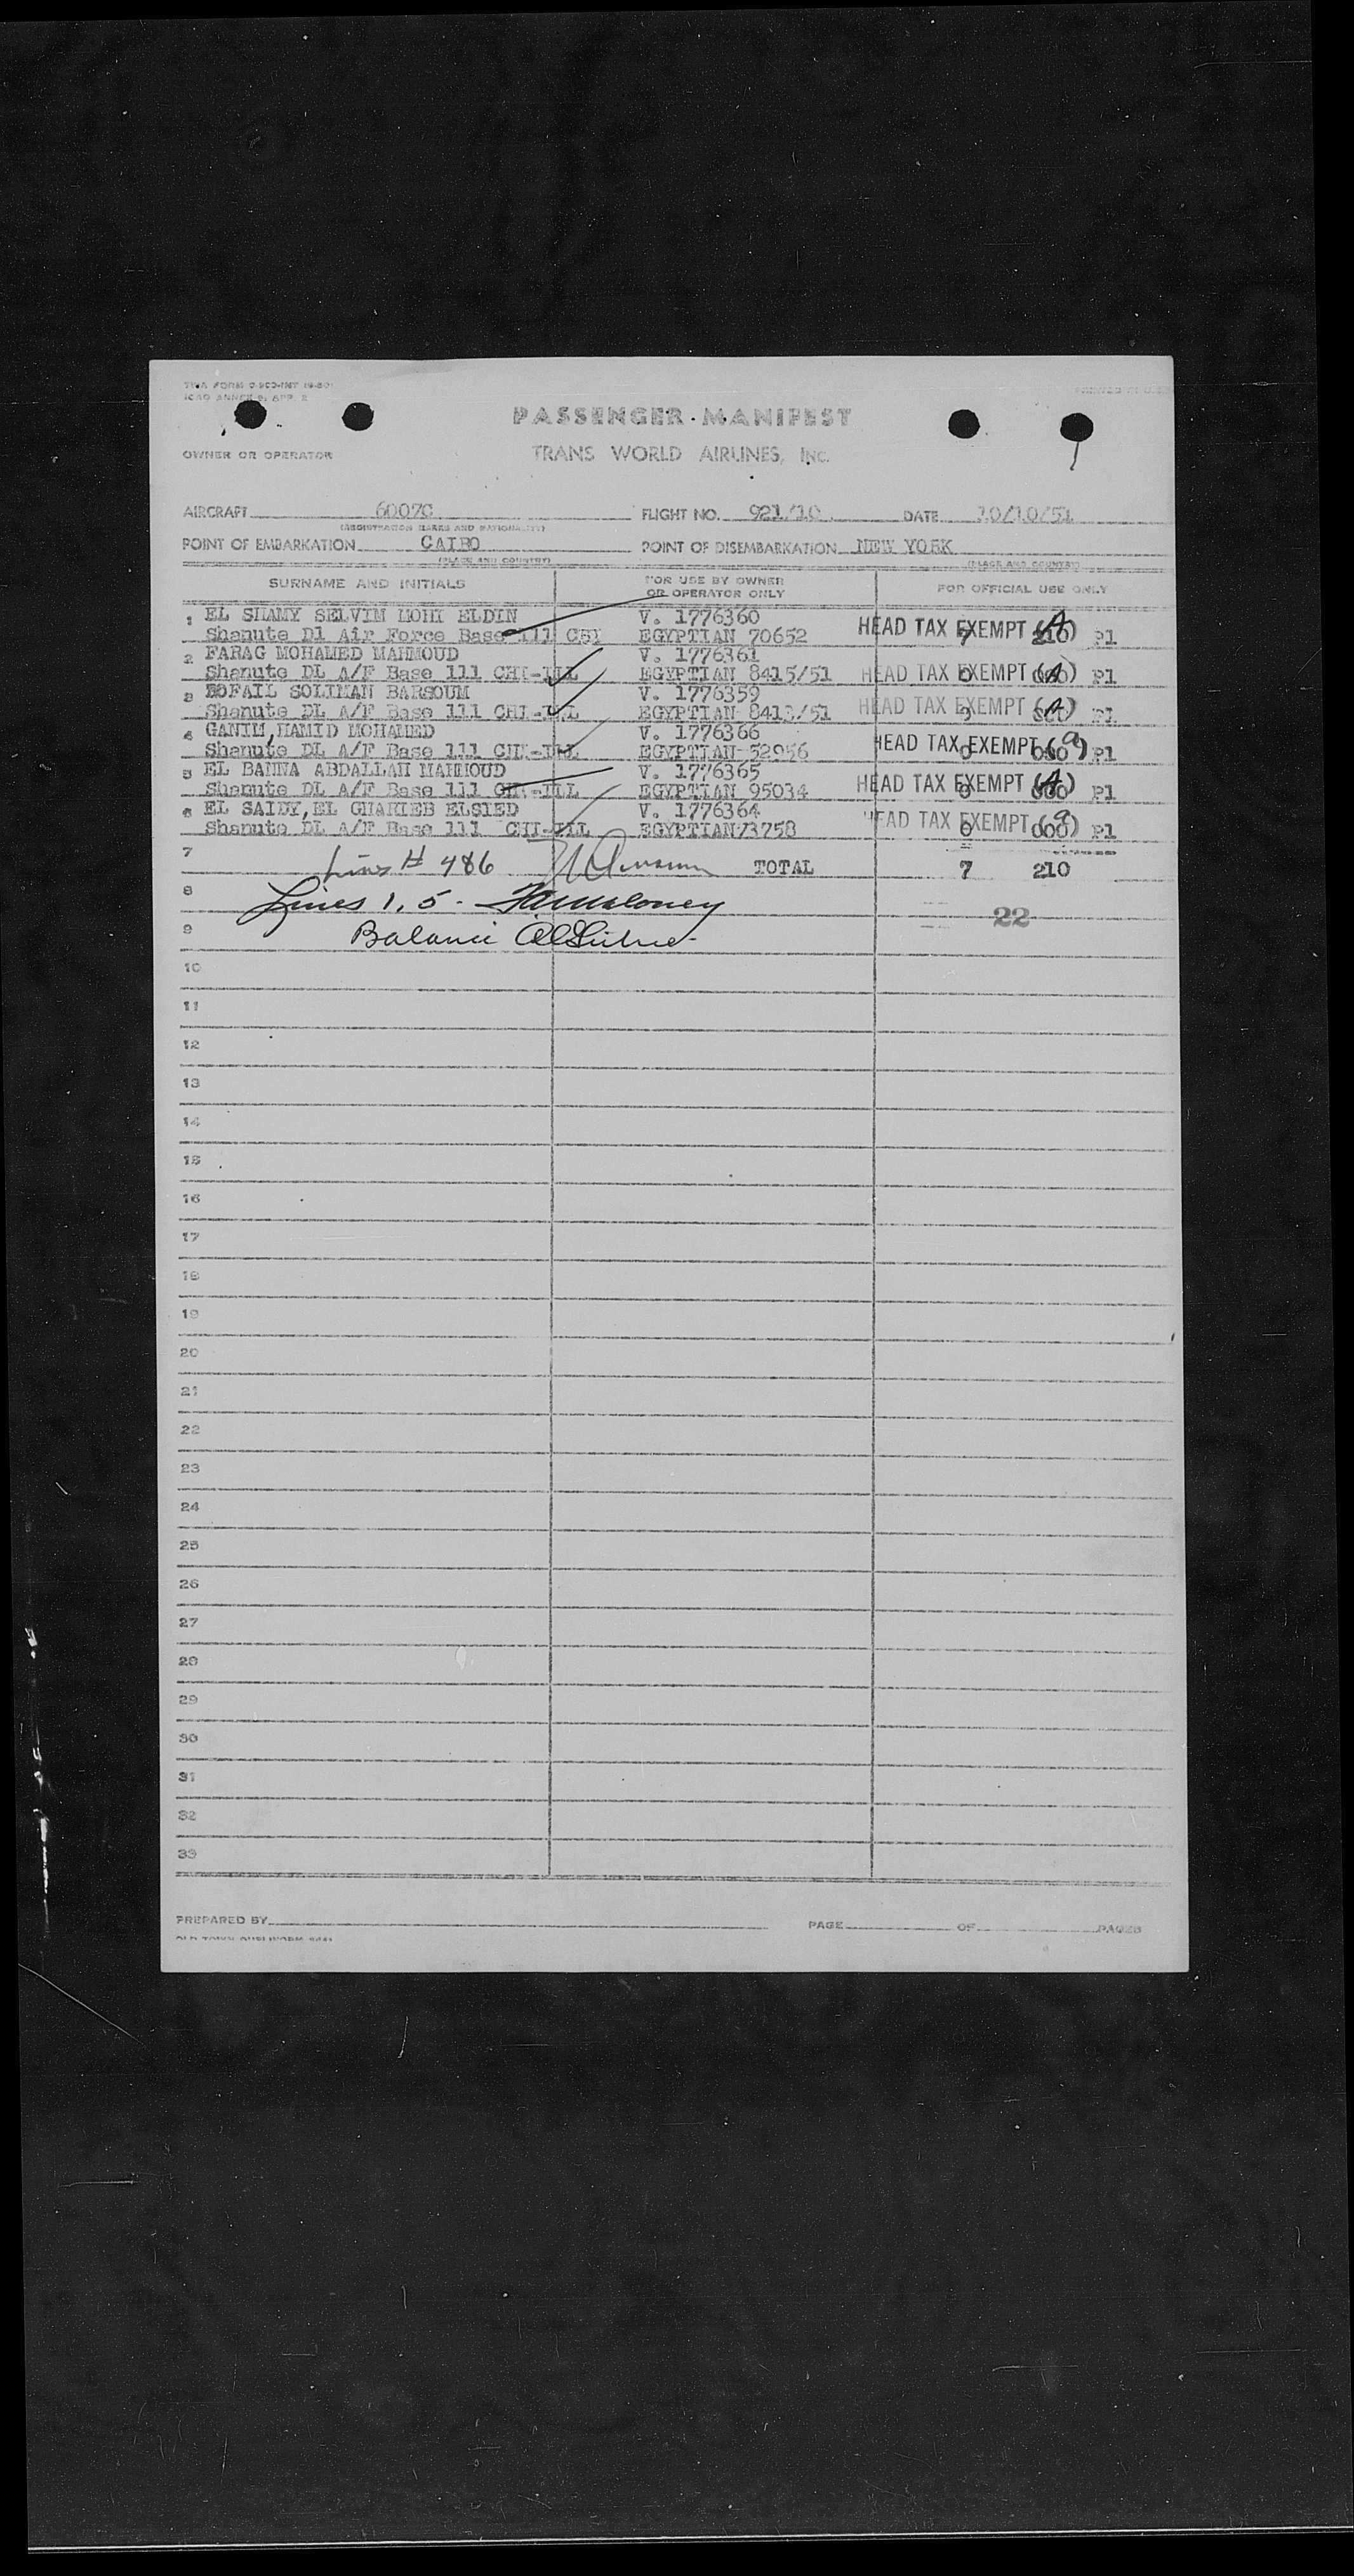 TWA FORM
ICAO ANNEX 9, APP. 2
PRINTED IN U.S.A.
PASSENGER MANIFEST
OWNER OR OPERATOR
TRANS WORLD AIRLINES, INC.
AIRCRAFT 6007C FLIGHT NO. 921/10 DATE 10/10/51
(REGISTRATION MARKS AND NATIONALITY)
POINT OF EMBARKATION CAIRO POINT OF DISEMBARKATION NEW YORK
(PLACE AND COUNTRY) (PLACE AND COUNTRY)
SURNAME AND INITIALS FOR USE BY OWNER OR OPERATOR ONLY FOR OFFICIAL USE ONLY
1 EL SHAMY SELVIM MOHI ELDIN V. 1776360
Shanute Dl Air Force Base 111 EGYPTIAN 70652 HEAD TAX EXEMPT (A) 7 210 P1
2 FARAG MOHAMED MAHMOUD V. 1776361
Shanute DL A/F Base 111 CHI-ILL EGYPTIAN 8415/51 HEAD TAX EXEMPT (A) 0 000 P1
3 ROFAIL SOLIMAN BARSOUM V. 1776359
Shanute DL A/F Base 111 CHI-ILL EGYPTIAN 8413/51 HEAD TAX EXEMPT (A) 0 000 P1
4 GANIM, HAMID MOHAMED V. 1776366
Shanute DL A/F Base 111 CHI-ILL EGYPTIAN 52956 HEAD TAX EXEMPT (a) 0 000 P1
5 EL BANNA ABDALLAH MAHMOUD V. 1776365
Shanute DL A/F Base 111 CHI-ILL EGYPTIAN 95034 HEAD TAX EXEMPT (A) 0 000 P1
6 EL SAIDY, EL GHARIEB ELSIED V. 1776364
Shanute DL A/F Base 111 CHI-ILL EGYPTIAN 73758 HEAD TAX EXEMPT (a) 0 000 P1
7 Lines # 4 & 6 TOTAL 7 210
8 Lines 1, 5 - Maloney
22
9 Balance
10
11
12
13
14
15
16
17
18
19
20
21
22
23
24
25
26
27
28
29
30
31
32
33
PREPARED BY PAGE OF PAGES